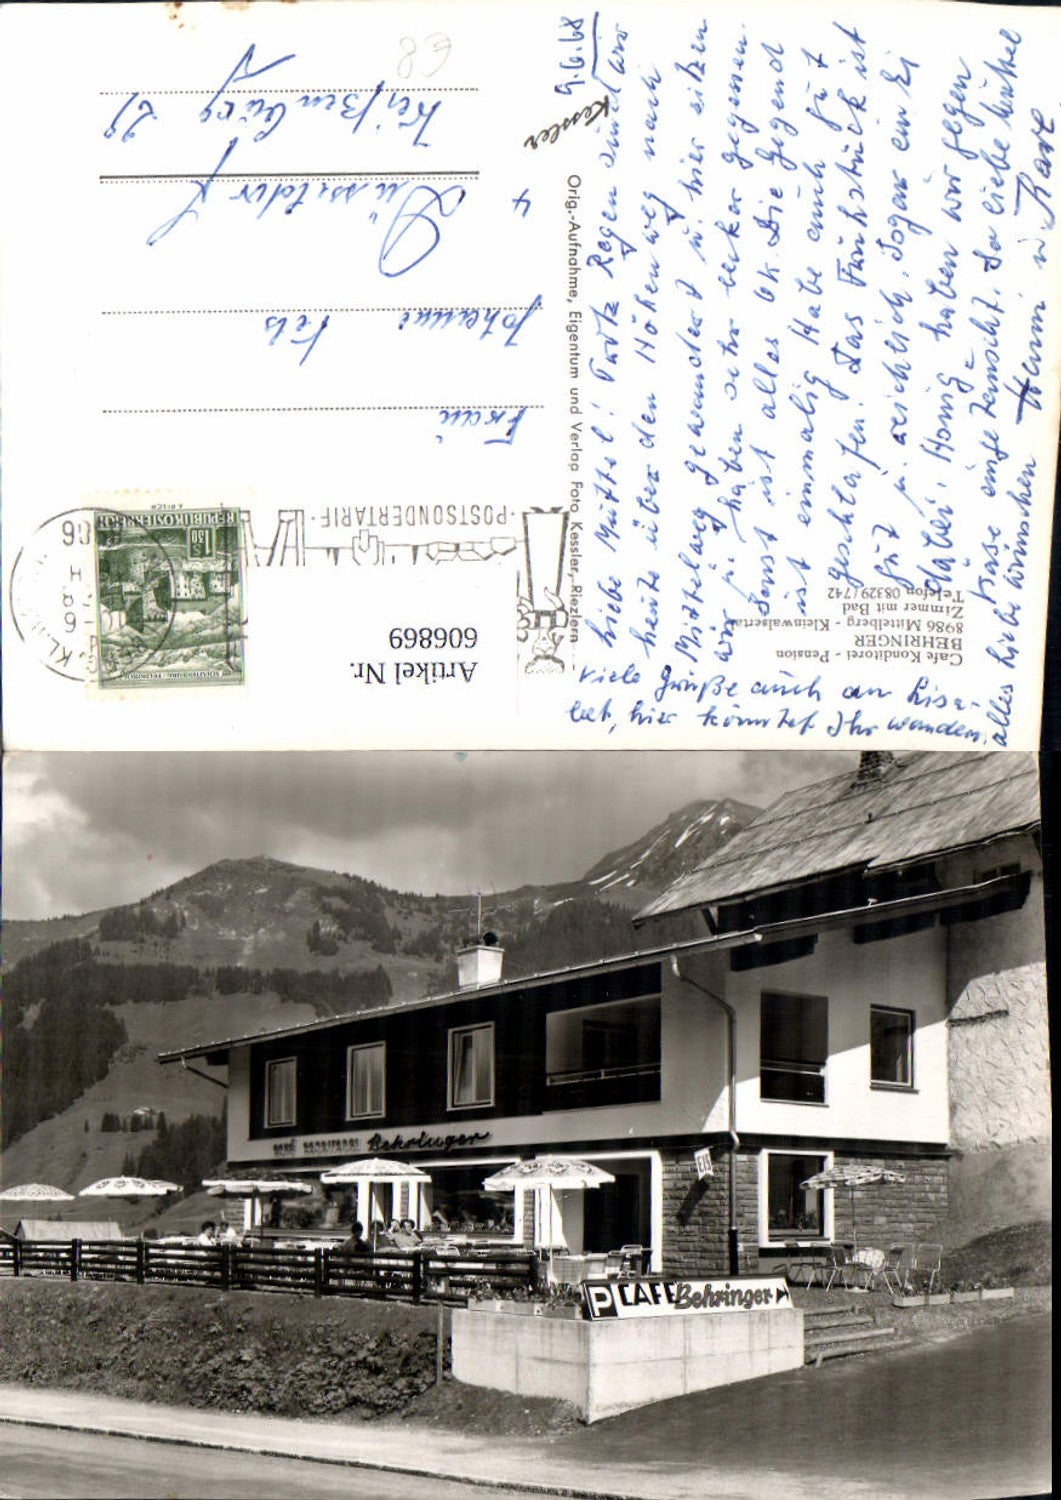 9.6.68
Liebe Mutter! Trotz Regen sind wir
heute über den Höhenweg nach
Mittelberg gewandert u. hier sitzen
wir u. haben sehr lecker gegessen.
Sonst ist alles ok. Die Gegend
ist einmalig. Habe auch gut
geschlafen. Das Frühstück ist
gut u. reichlich. Sogar ein Ei
dabei. Honig haben wir gegen
Käse eingetauscht. So liebe
alles Liebe wünschen
Hanni u. Karl
Viele Grüße auch an Lisa-
bet, hier könntet Ihr wandern.
Cafe Konditorei - Pension
BEHRINGER
8986 Mittelberg - Kleinwalsertal
Zimmer mit Bad
Telefon 08329/742
Kessler
Orig.-Aufnahme, Eigentum und Verlag Foto Kessler, Riezlern
Artikel Nr.
606869
·POSTSONDERTARIF·
REPUBLIK ÖSTERREICH
1.50
SCHATTENBURG · FELDKIRCH
Frau
4 Düsseldorf
29
€8
CAFÉ KONDITOREI Behringer
EIS
P CAFE Behringer